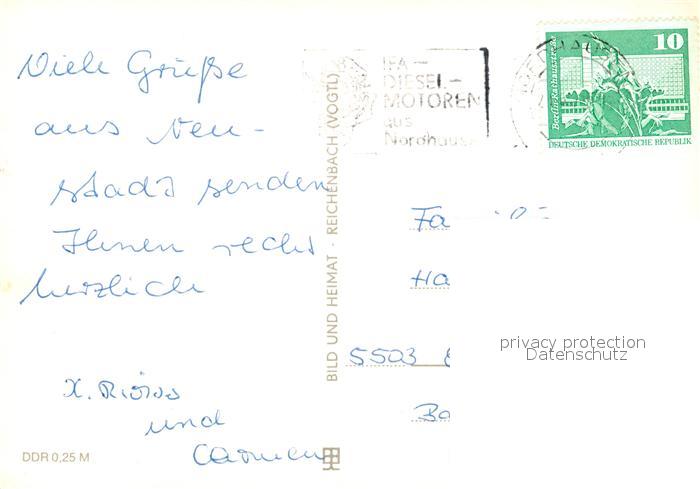 Viele Grüße
aus Neu-
stadt senden
Ihnen recht
herzlich
und
Carmen
DDR 0,25 M
BILD UND HEIMAT · REICHENBACH (VOGTL)
IFA-
DIESEL-
MOTOREN
aus
Nordhaus
10
Berlin-Rathausstraße
DEUTSCHE DEMOKRATISCHE REPUBLIK
Fa
Ha
5503
Ba
privacy protection
Datenschutz